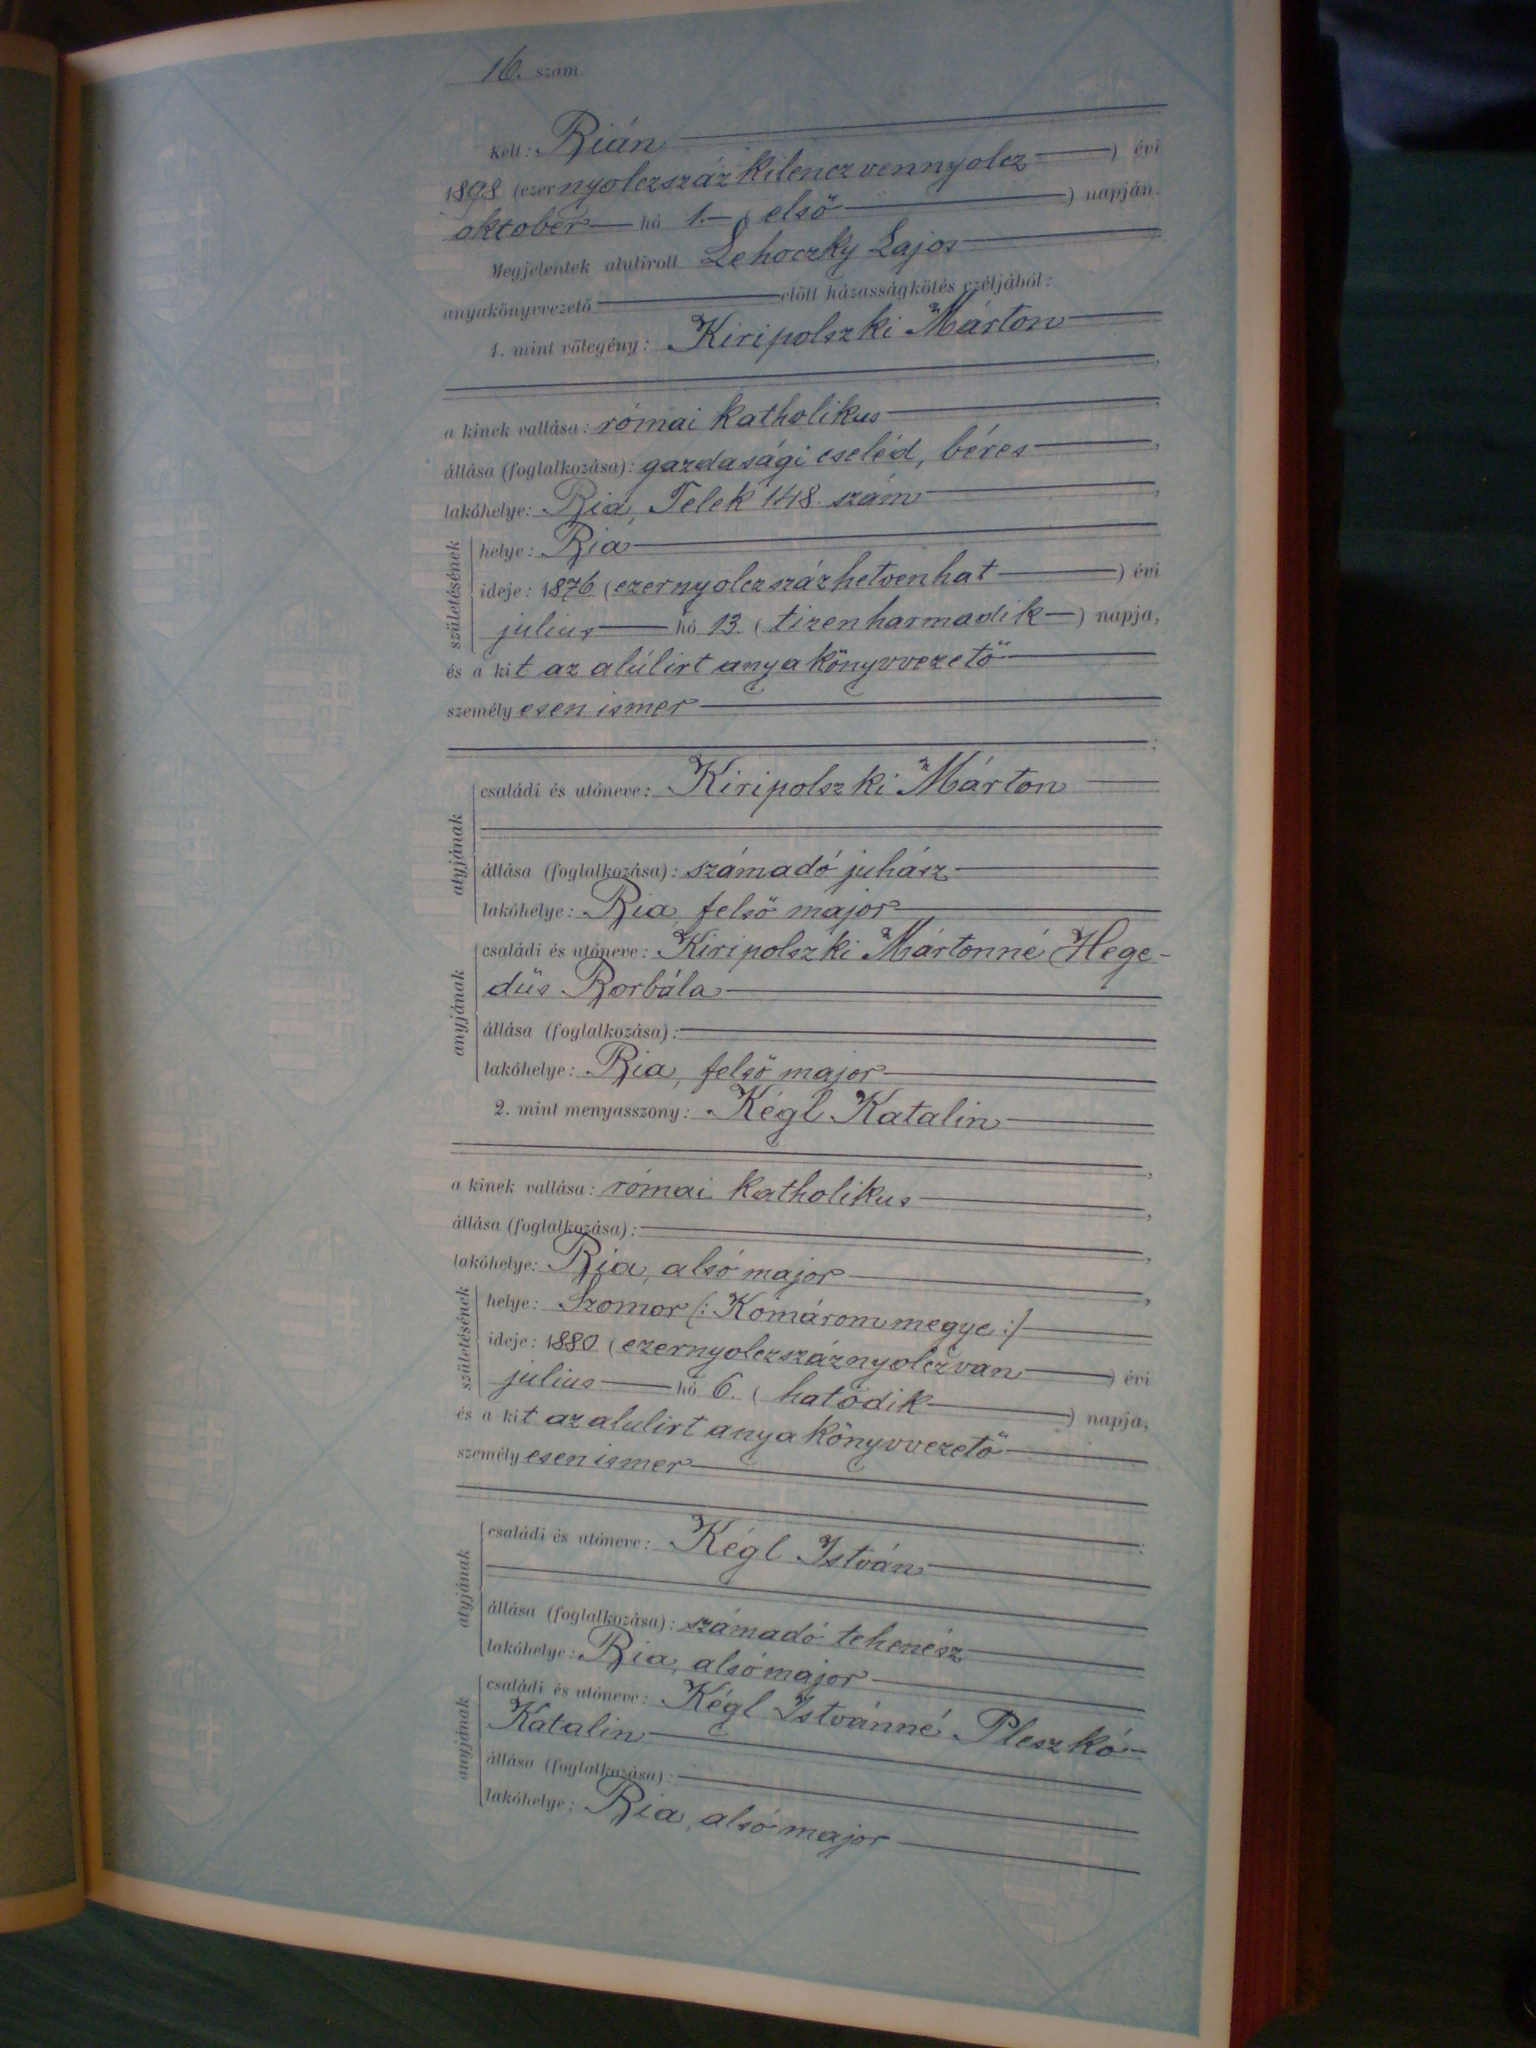 16. szám.
Kelt: Bián
1898 (ezernyolczszáz kilenczvennyolcz) évi
oktober hó 1. (első) napján.
Megjelentek alulírott Lehoczky Lajos
anyakönyvvezető előtt házasságkötés czéljából:
1. mint vőlegény: Kiripolszki Márton
a kinek vallása: római katholikus,
állása (foglalkozása): gazdasági cseléd, béres,
lakóhelye: Bia, Telek 148. szám,
születésének
helye: Bia
ideje: 1876 (ezernyolczszázhetvenhat) évi
julius hó 13. (tizenharmadik) napja,
és a kit az alúlirt anyakönyvvezető
személyesen ismer
;
atyjának
családi és utóneve: Kiripolszki Márton
állása (foglalkozása): számadó juhász
lakóhelye: Bia, felső major
anyjának
családi és utóneve: Kiripolszki Mártonné Hege-
düs Borbála
állása (foglalkozása):
lakóhelye: Bia, felső major
2. mint menyasszony: Kégl Katalin
,
a kinek vallása: római katholikus,
állása (foglalkozása):,
lakóhelye: Bia, alsó major,
születésének
helye: Szomor (: Komárommegye :)
ideje: 1880 (ezernyolczszáznyolczvan) évi
julius hó 6. (hatodik) napja,
és a kit az alulirt anyakönyvvezető
személyesen ismer
;
atyjának
családi és utóneve: Kégl István
állása (foglalkozása): számadó tehenész
lakóhelye: Bia, alsó major
anyjának
családi és utóneve: Kégl Istvánné Pleszkó
Katalin
állása (foglalkozása):
lakóhelye: Bia, alsó major